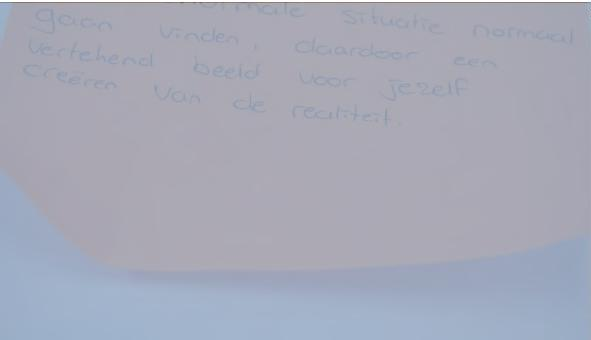 situatie normaal
gaan vinden, daardoor een
vertehend beeld voor jezelf
creëren van de realiteit.